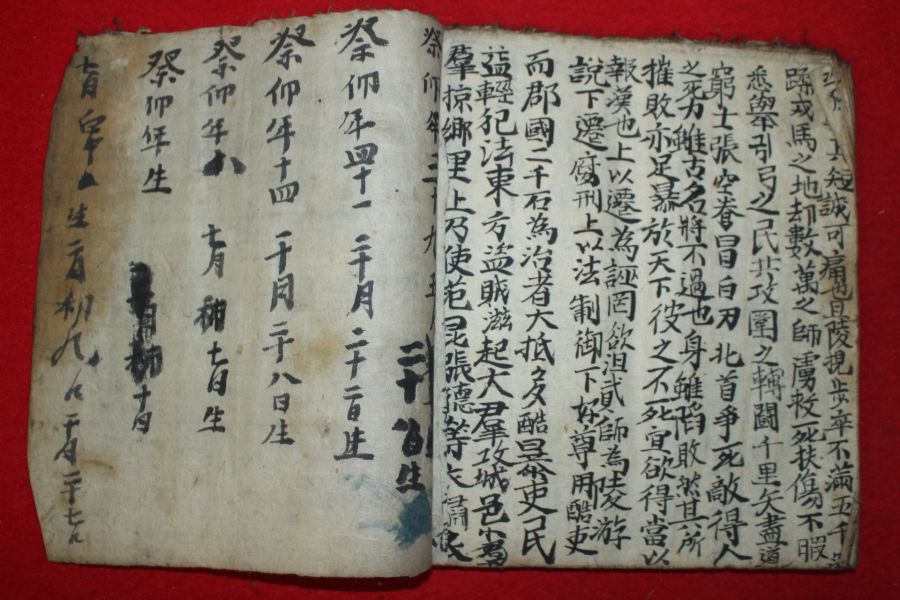 其短誠可痛也且陵提步卒不滿五千
蹂戎馬之地却數萬之師虜救死扶傷不暇
悉擧引弓之民共攻圍之轉鬪千里矢盡道
窮士張空弮冒白刃北首爭死敵得人
之死力雖古名將不過也身雖陷敗然其所
摧敗亦足暴於天下彼之不死宜欲得當以
報漢也上以遷為誣罔欲沮貳師為陵游
說下遷腐刑上以法制御下好尊用酷吏
而郡國二千石為治者大抵多酷暴吏民
益輕犯法東方盜賊滋起大羣攻城邑小羣
羣掠鄉里上乃使范昆張德等衣繡衣
祭仰年三十九五月
二十 生
祭仰年四十一 二十月二十二日生
祭仰年十四 一十月二十八日生
祭仰年 七月初十七日生
祭仰年生
七月 生